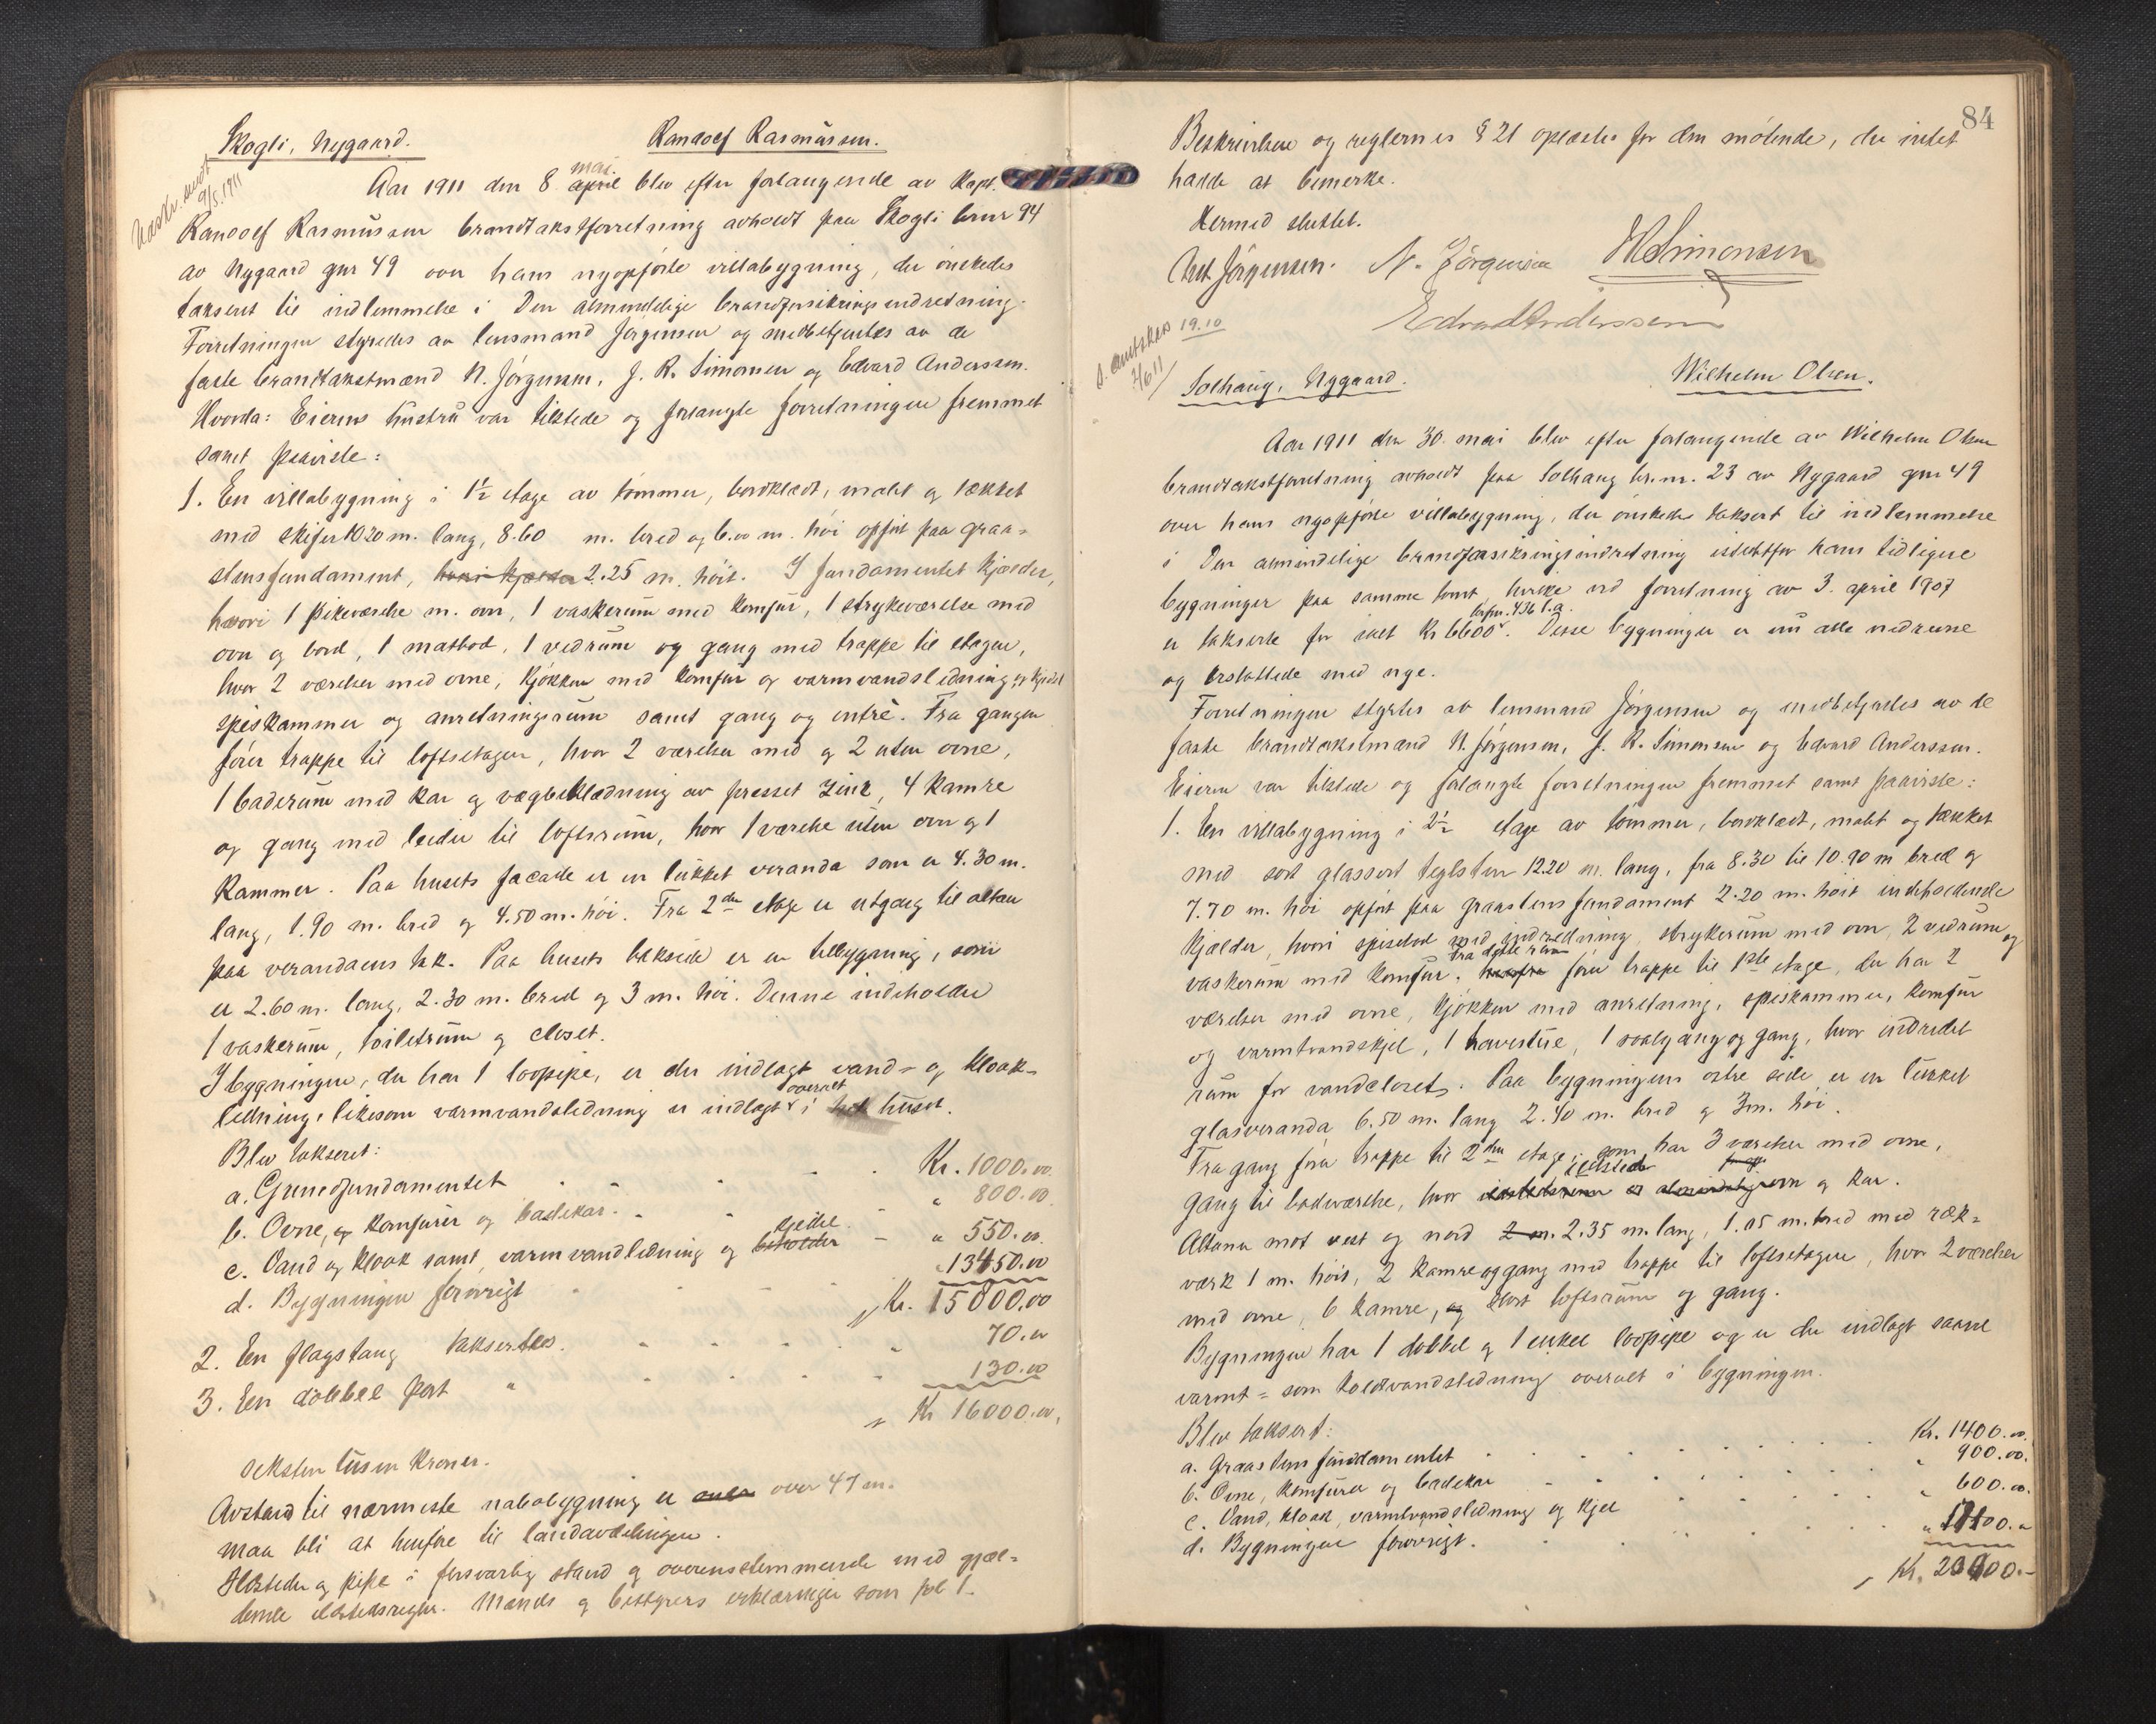 Skogli, Nygaard. Randolf Rasmussen.
Utskr. sendt
9/5.1911
mai
Aar 1911 den 8 april blev efter forlangende av kapt.
Randolf Rasmussen brandtakstforretning avholdt paa Skogli brnr 94
av Nygaard gnr 49 over hans nyopførte villabygning, der ønskedes
taksert til indlemmelse i Den almindelige brandforsikringsindretning.
Forretningen styredes av lensmand Jørgensen og medbetjentes av de
faste brandtakstmænd N. Jørgensen, J. R. Simonsen og Edvard Anderssen.
Hvorda: Eierens hustru var tilstede og forlangte forretningen fremmet
samt paaviste:
1. En villabygning i 1½ etage av tømmer, bordklædt, malt og tækket
med skifer 10.20 m. lang, 8.60 m. bred og 6.00 m. høi opført paa graa-
stensfundament, hvori kjælder 2.25 m. høit. I fundamentet kjælder,
hvori 1 pikeværelse m. ovn, 1 vaskerum med komfur, 1 strykeværelse med
ovn og bord, 1 matbod, 1 vedrum og gang med trappe til etagen,
hvor 2 værelser med ovne, kjøkken med komfur og varmvandsledning og kjedel
spiskammer og anretningsrum samt gang og entré. Fra gangen
fører trappe til loftsetagen, hvor 2 værelser med og 2 uten ovne,
1 baderum med kar og vægbeklædning av presset zink, 4 kamre
og gang med leider til loftsrum, hvor 1 værelse uten ovn og 1
kammer. Paa husets facade er en lukket veranda som er 4.30 m.
lang, 1.90 m. bred og 4.50 m. høi. Fra 2den etage er utgang til altan
paa verandaens tak. Paa husets bakside er en tilbygning, som
er 2.60 m. lang, 2.30 m. bred og 3 m. høi. Denne indeholder
1 vaskerum, toiletrum og closet.
I bygningen, der har 1 løpepipe, er der indlagt vand- og kloak-
overalt
ledning, likesom varmvandsledning er indlagt i hele huset.
Blev takseret:
a. Grundfundamentet Kr. 1000.00
b. Ovne, og komfurer og badekar " 800.00
kjedel
c. Vand og kloak samt varmvandledning og beholder " 550.00
d. Bygningen forøvrigt " 13450.00
Kr. 15800.00
2. En flagstang takseredes. 70.00
3. En dobbel port " 130.00
Kr 16000.00
seksten tusen kroner.
Avstand til nærmeste nabobygning er over 47 m.
maa bli at henføre til landavdelingen.
Ildsteder og pipe i forsvarlig stand og overensstemmende med gjæl-
dende ildstedsregler. Mænds og bestyrers erklæringer som fol 1
84
Beskrivelsen og reglernes § 21 oplæstes for den møtende, der intet
hadde at bemerke.
Hermed sluttet.
Chr. Jørgensen. N. Jørgensen J R Simonsen
Edvard Anderssen
S. amtskas 19.10
7/6 11
Solhaug, Nygaard. Wilhelm Olsen.
Aar 1911 den 30. mai blev efter forlangende av Wilhelm Olsen
brandtakstforretning avholdt paa Solhaug br.nr. 23 av Nygaard gnr 49
over hans nyopførte villabygning, der ønskedes taksert til indlemmelse
i Den almindelige brandforsikringsindretning istedetfor hans tidligere
bygninger paa samme tomt, hvilke ved forretning av 3. april 1907
brfnr. 436 l.a.
er takserte for ialt Kr 6600. Disse bygninger er nu alle nedrevne
og erstattede med nye.
Forretningen styrtes av lensmand Jørgensen og medbetjentes av de
faste brandtakstmænd N. Jørgensen, J. R. Simonsen og Edvard Anderssen.
Eieren var tilstede og forlangte forretningen fremmet samt paaviste:
1. En villabygning i 2½ etage av tømmer, bordklædt, malt og tækket
med sort glassert teglsten 12.20 m. lang, fra 8.30 til 10.90 m bred og
7.70 m. høi opført paa graastensfundament 2.20 m. høit indeholdende
kjælder, hvori spisebod med indredning, strykerum med ovn, 2 vedrum og
Fra dette rum
vaskerum med komfur. herfra fører trappe til 1ste etage, der har 2
værelser med ovne, kjøkken med anretning, spiskammer, komfur
og varmtvandskjel, 1 havestue, 1 svalgang og gang, hvor indredet
rum for vandclosets. Paa bygningens østre side er en lukket
glasveranda 6.50 m. lang 2.40 m. bred og 3 m. høi.
Fra gang fører trappe til 2den etage, som har 3 værelser med ovne,
ildsted
gang til badeværelse, hvor ovn og kar.
Altaner mot vest og nord 2 m. 2.35 m. lang, 1.05 m. bred med ræk-
værk 1 m. høit, 2 kamre og gang med trappe til loftsetagen, hvor 2 værelser
med ovne, 6 kamre, og stort loftsrum og gang.
Bygningen har 1 dobbel og 1 enkel løpepipe og er der indlagt saavel
varmt- som koldtvandsledning overalt i bygningen.
Blev taksert:
a. Graastensfundamentet Kr. 1400.00
b. Ovne, komfurer og badekar " 900.00
c. Vand, kloak, varmtvandsledning og kjel " 600.00
d. Bygningen forøvrigt.
Kr. 20900.-